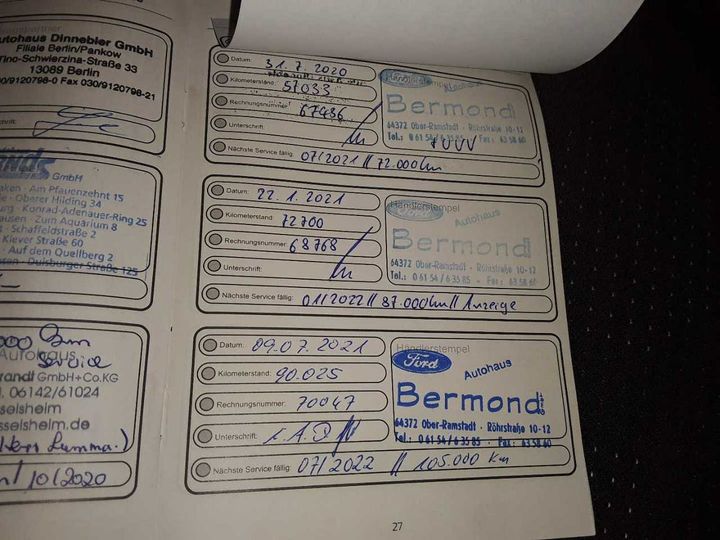 utohaus Dinnebier GmbH
Filiale Berlin/Pankow
Tino-Schwierzina-Straße 33
13089 Berlin
Fax 030/9120798-21
GmbH
Am Pfauenzehnt 15
Oberer Hilding 34
Konrad-Adenauer-Ring 25
Zum Aquarium 8
Schaffeldstraße 2
Kiever Straße 60
Auf dem Quellberg 2
Duisburger Straße 125
Service
Autohaus
randt GmbH+Co.KG
06142/61024
sselsheim
sselsheim.de
10/2020
Datum: 31.7.2020
Kilometerstand: 57033
Rechnungsnummer: 67436
Unterschrift:
Nächste Service fällig: 07/2021 // 72.000 km
Händlerstempel
Bermond
64372 Ober-Ramstadt · Röhrstraße 10-12
Tel.: 0 61 54 / 6 35 85 Fax: 6 35 8 60
Datum: 22.1.2021
Kilometerstand: 72700
Rechnungsnummer: 68768
Unterschrift:
Nächste Service fällig: 01/2022 // 87.000 km // Anzeige
Händlerstempel
Ford
Autohaus
Bermond
64372 Ober-Ramstadt · Röhrstraße 10-12
Tel.: 0 61 54 / 6 35 85 - Fax: 63 58 60
Datum: 09.07.2021
Kilometerstand: 90.025
Rechnungsnummer: 70047
Unterschrift: i.A.
Nächste Service fällig: 07/2022 // 105.000 km
Händlerstempel
Ford
Autohaus
Bermond
64372 Ober-Ramstadt · Röhrstraße 10-12
Tel.: 0 61 54 / 6 35 85 - Fax: 63 58 60
27